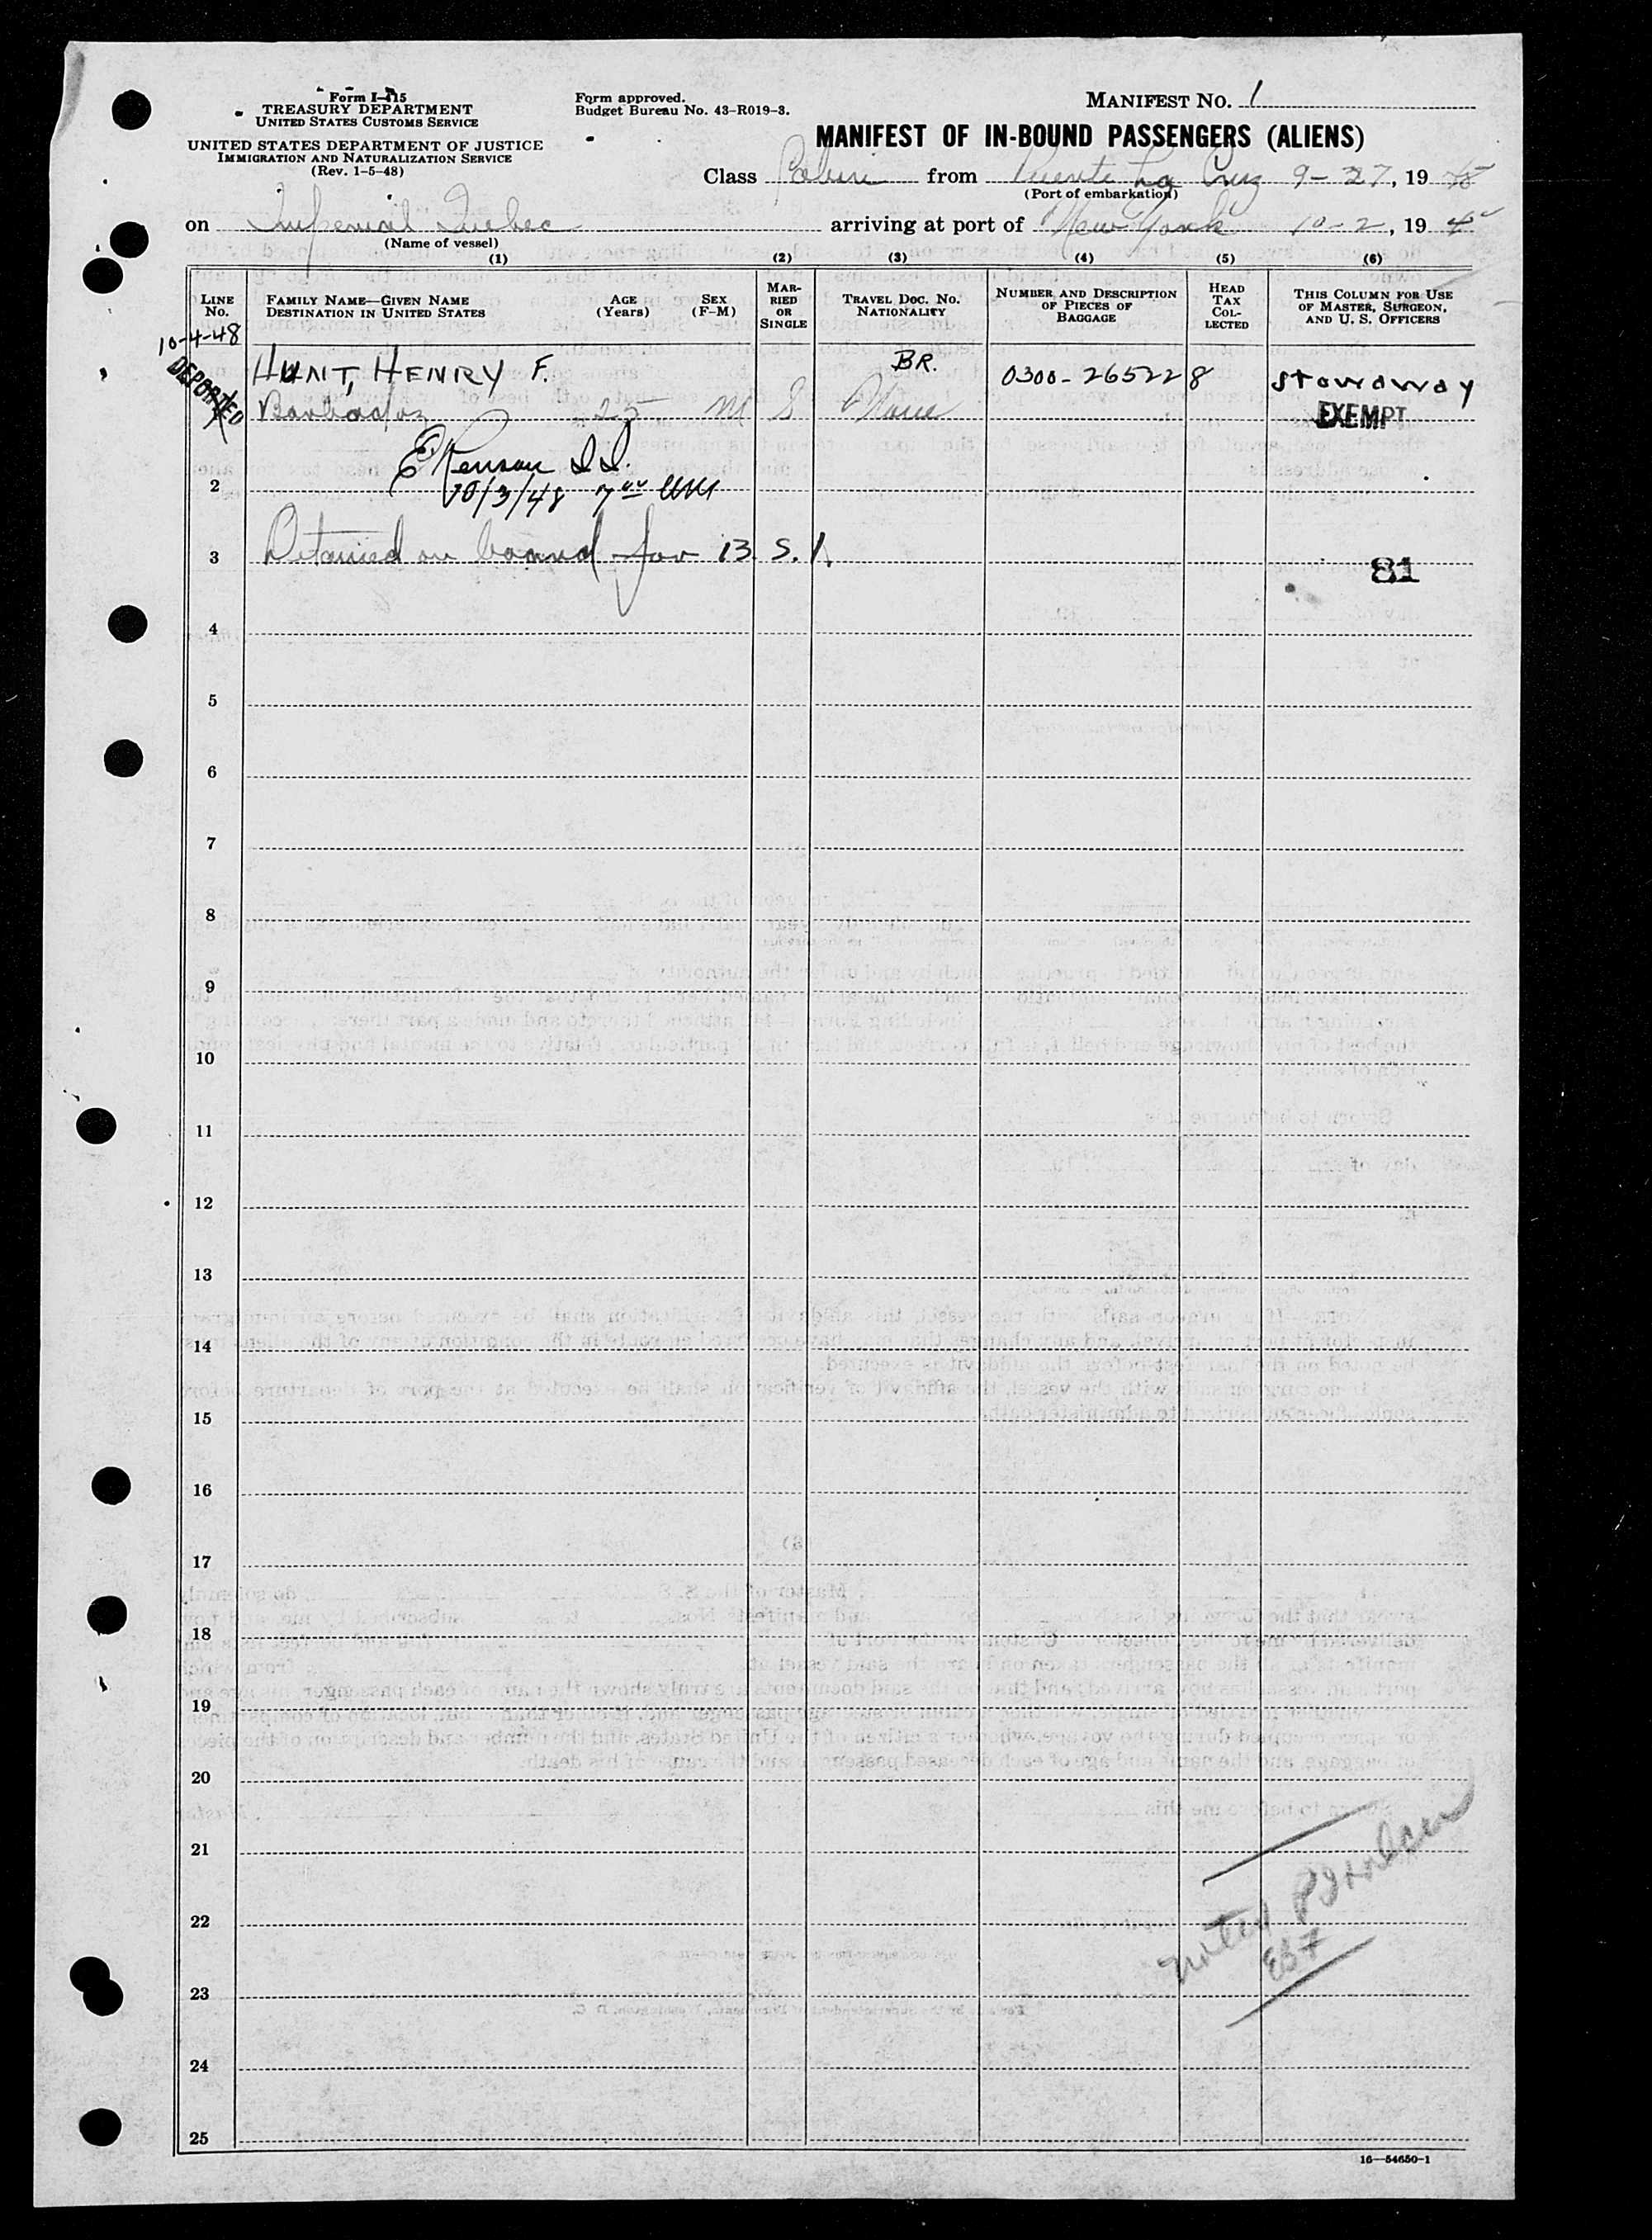 Form I-415
TREASURY DEPARTMENT
UNITED STATES CUSTOMS SERVICE
UNITED STATES DEPARTMENT OF JUSTICE
IMMIGRATION AND NATURALIZATION SERVICE
(Rev. 1-5-48)
Form approved.
Budget Bureau No. 43-R019-3.
MANIFEST NO. 1
MANIFEST OF IN-BOUND PASSENGERS (ALIENS)
Class from Puerto La Cruz 9-27, 19 48
(Port of embarkation)
on Imperial Quebec arriving at port of New York 10-2, 19 4
(Name of vessel)
(1) (2) (3) (4) (5) (6)
LINE NO.
FAMILY NAME—GIVEN NAME
DESTINATION IN UNITED STATES
AGE (Years)
SEX (F-M)
MARRIED OR SINGLE
TRAVEL DOC. NO. NATIONALITY
NUMBER AND DESCRIPTION OF PIECES OF BAGGAGE
HEAD TAX COLLECTED
THIS COLUMN FOR USE OF MASTER, SURGEON, AND U. S. OFFICERS
10-4-48
DEPORTED
HUNT, HENRY F. BR. 0300-265228 Stowaway
Barbados 25 M S None EXEMPT
10/3/48 7
2
3 Detained on board for B. S. I.
81
4
5
6
7
8
9
10
11
12
13
14
15
16
17
18
19
20
21
22
noted
23
24
25
16—54650-1